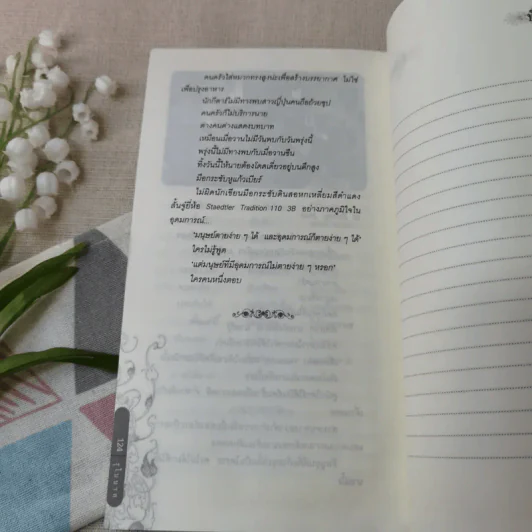 คนครัวใส่หมวกทรงสูงปะเพื่อสร้างบรรยากาศ ไม่ใช่
เพื่อปรุงอาหาร
นักกีตาร์ไม่มีทางพบสาวญี่ปุ่นคนถือถ้วยซุป
คนครัวก็ไม่บริการนาย
ต่างคนต่างแสดงบทบาท
เหมือนเมื่อวานไม่มีวันพบกับวันพรุ่งนี้
พรุ่งนี้ไม่มีทางพบกับเมื่อวานซืน
ทิ้งวันนี้ให้นายต้องโดดเดี่ยวอยู่บนตึกสูง
มือกระชับหูแก้วเบียร์
ไม่ผิดนักเขียนมือกระชับดินสอหกเหลี่ยมสีดำแดง
ลิ้นจู่ยี่ห้อ Staedtler Tradition 110 3B อย่างภาคภูมิใจใน
อุดมการณ์...
"มนุษย์ตายง่าย ๆ ได้ และอุดมการณ์ก็ตายง่าย ๆ ได้"
ใครไม่รู้พูด
"แต่มนุษย์ที่มีอุดมการณ์ไม่ตายง่าย ๆ หรอก"
ใครคนหนึ่งตอบ
124